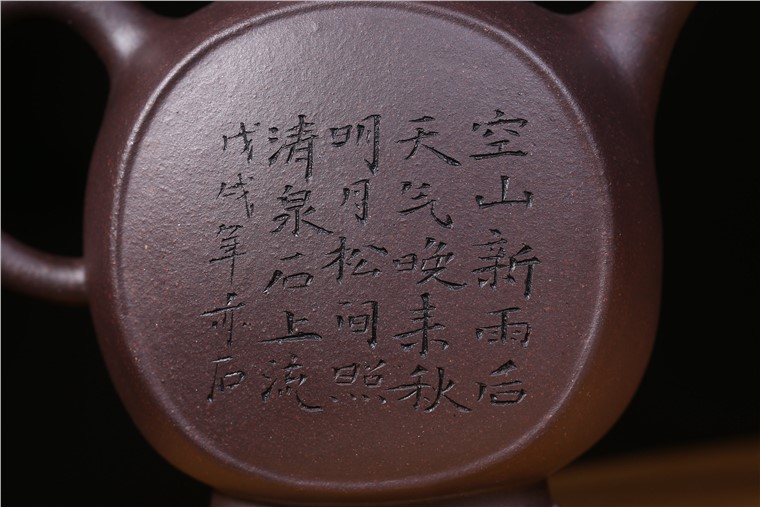 空山新雨后
天气晚来秋
明月松间照
清泉石上流
戊戌年亦石